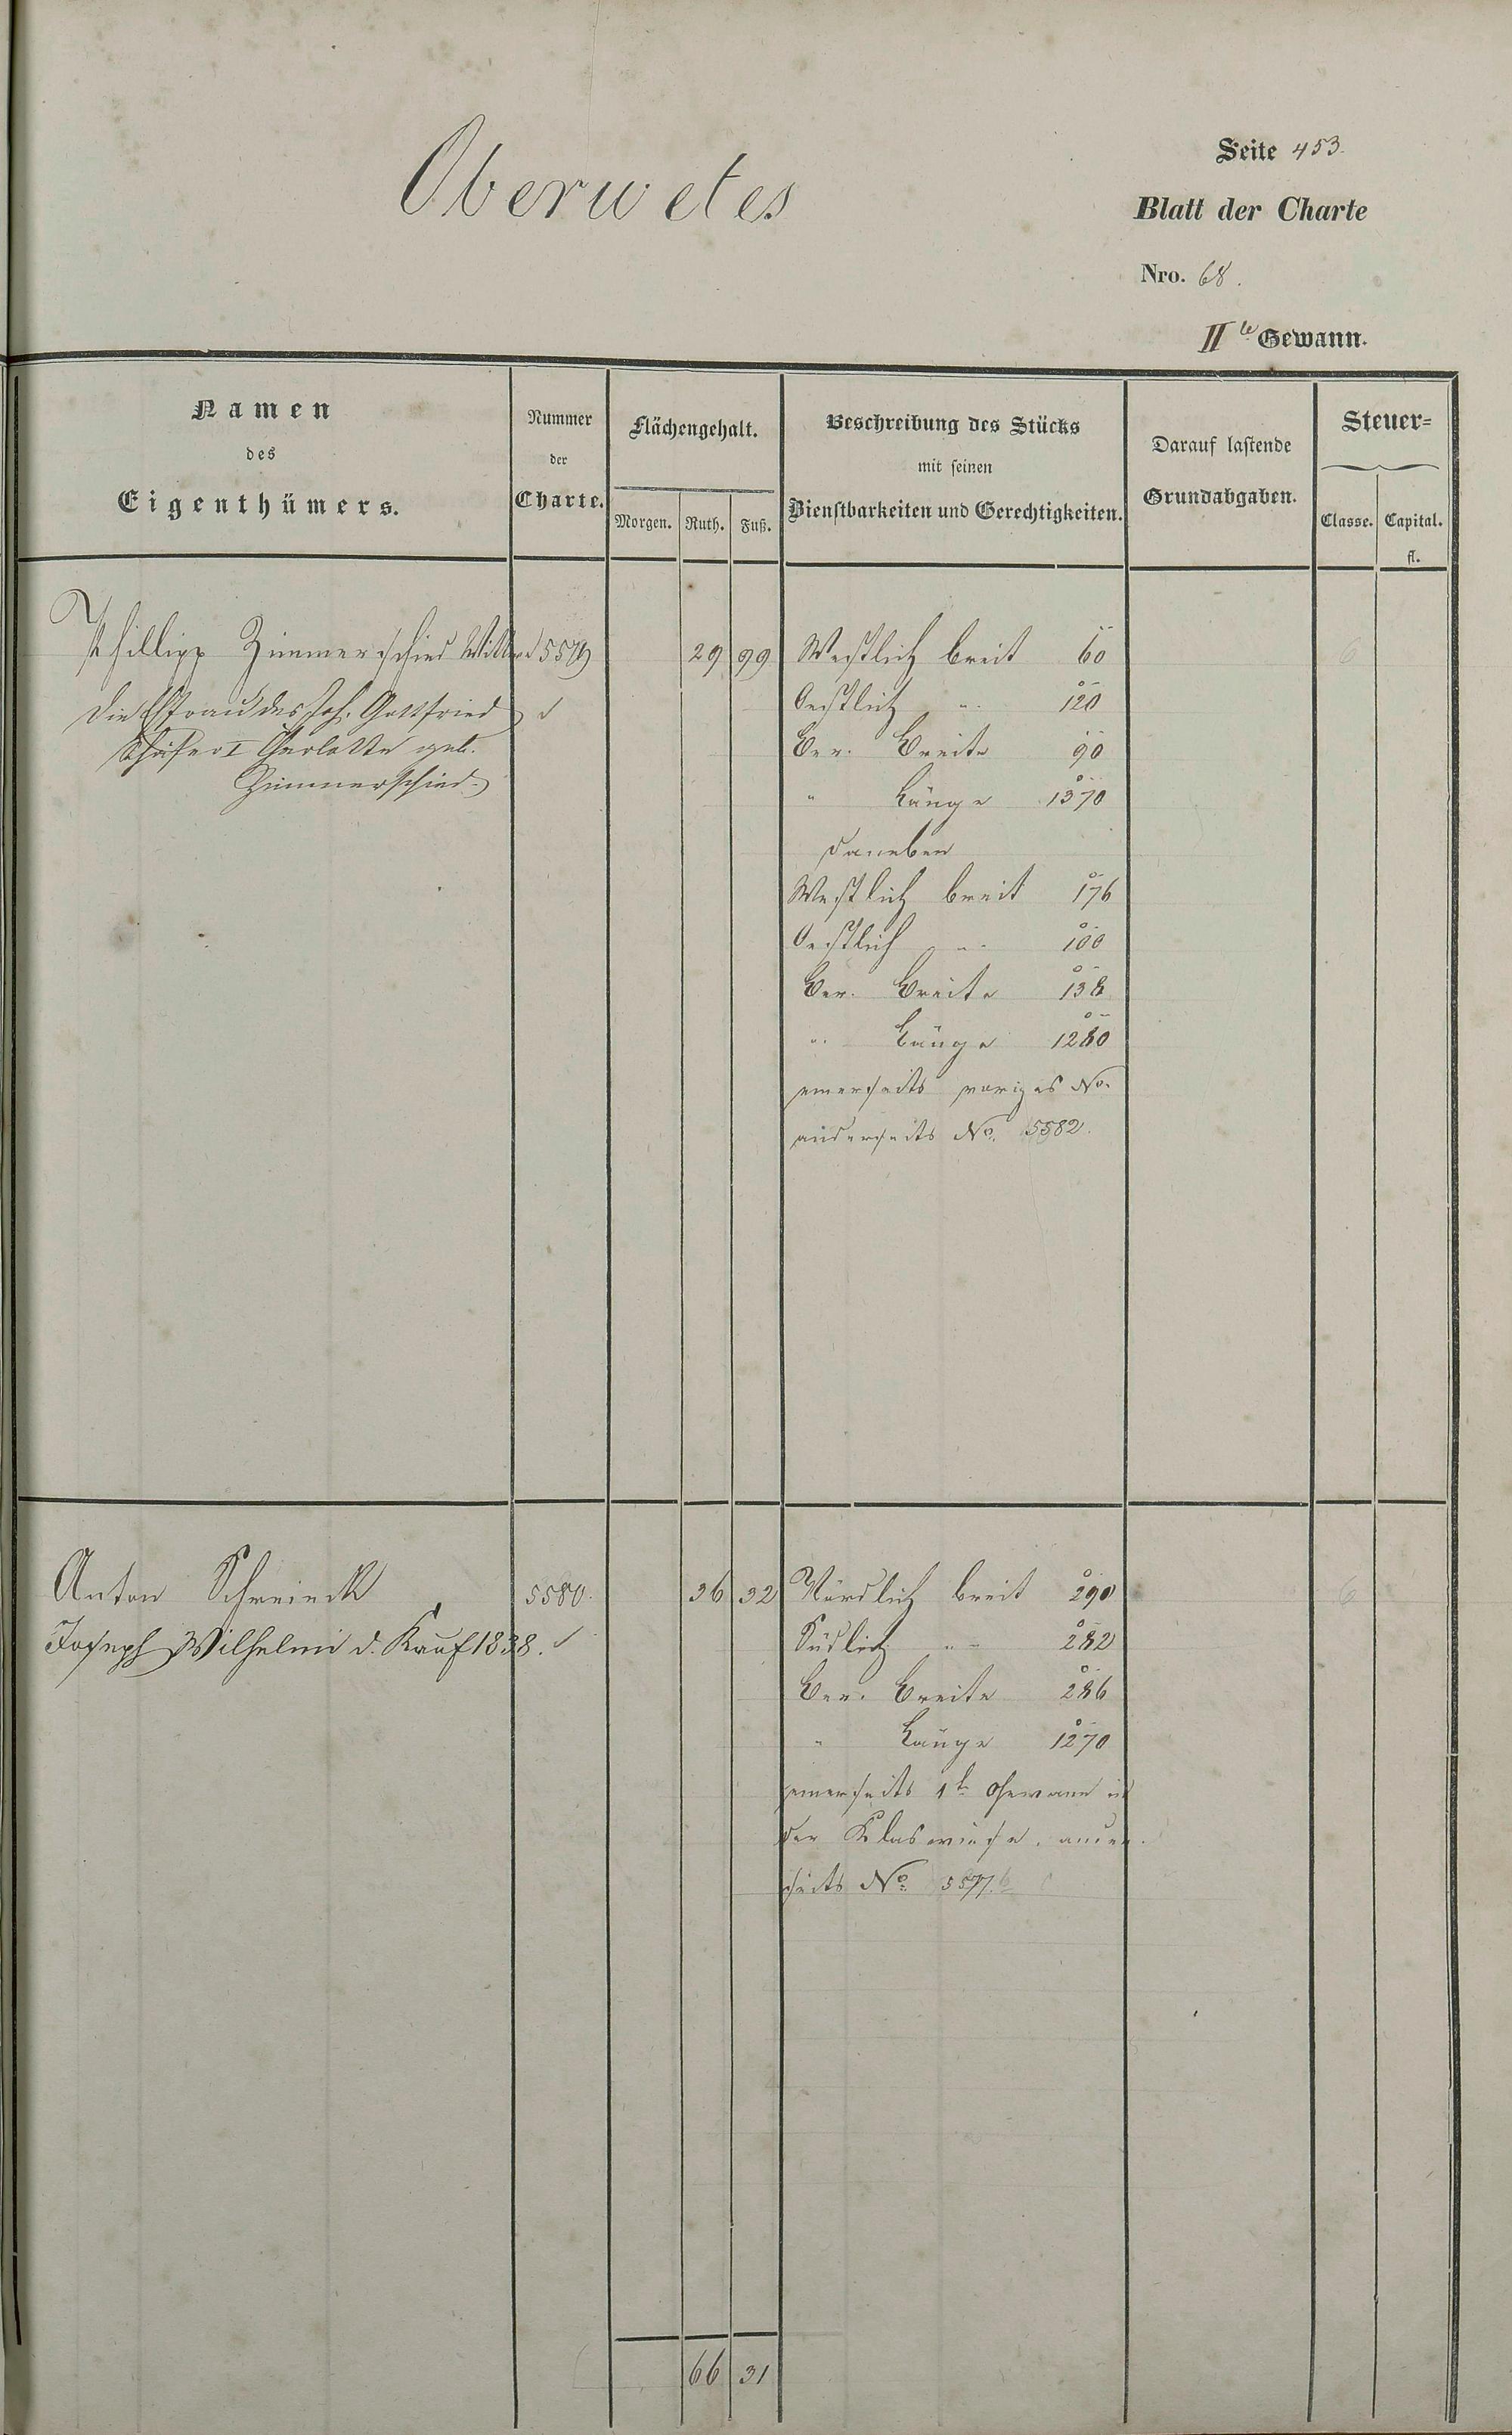 Oberwetes
Seite 453.
Blatt der Charte
Nro. 68.
II te Gewann.
Namen
des
Eigenthümers.
Nummer
der
Charte.
Flächengehalt.
Morgen. Ruth. Fuß.
Beschreibung des Stücks
mit seinen
Dienstbarkeiten und Gerechtigkeiten.
Darauf lastende
Grundabgaben.
Steuer-
Classe. Capital.
fl.
Phillipp Zimmerschied 5579 29 99 Westlich breit 60 6
Die Efrau des Joh. Gottfried Oestlich " 120
Schäfer I geb. Ber. Breite 90
Zimmerschied " Länge 1370
daneben
Westlich breit 176
Oestlich " 100
Ber. Breite 138
" Länge 1280
einerseits voriges No.
anderseits No. 5582.
Anton Schreinck 5580. 36 32 Nördlich breit 290 6
Joseph Wilhelmi d. Kauf 1838. Südlich " 282
Ber. Breite 286
" Länge 1270
einerseits 1te Gewann in
der Klaswiese, ander-
seits No. 5577.
66 31